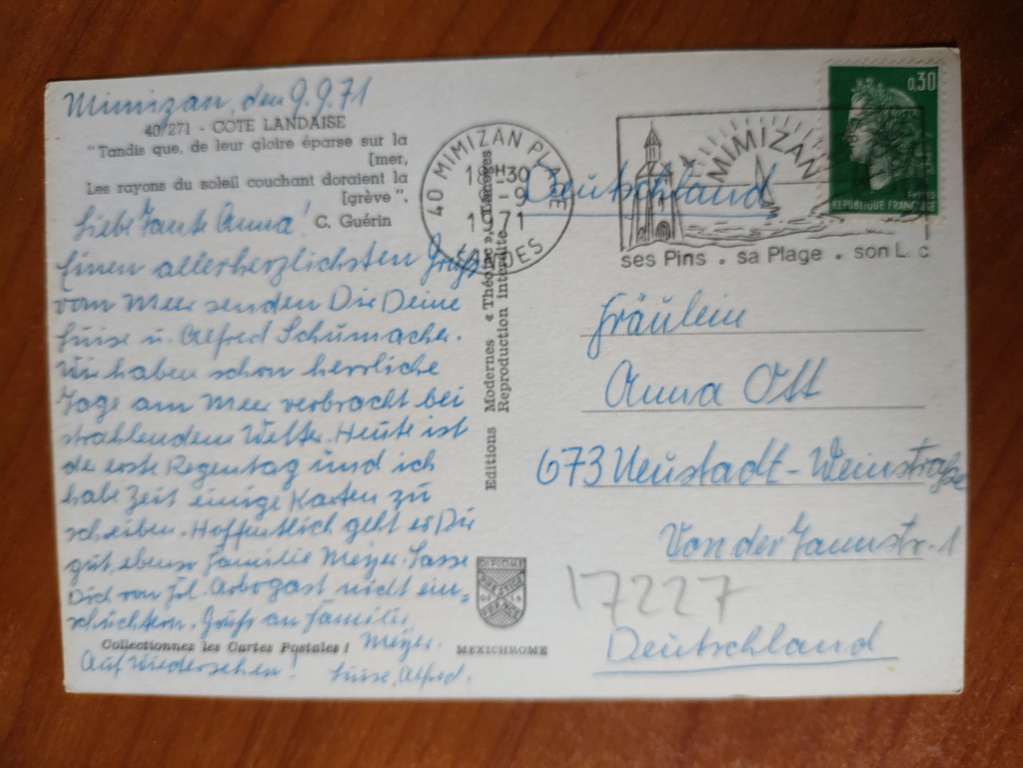 Mimizan, den 9.9.71
40/271 - COTE LANDAISE
"Tandis que, de leur gloire éparse sur la
[mer,
Les rayons du soleil couchant doraient la
[grève".
C. Guérin
Liebe Tante Anna!
Einen allerherzlichsten Gruß
vom Meer senden Dir Deine
Luise u. Alfred Schumacher.
Wir haben schon herrliche
Tage am Meer verbracht bei
strahlendem Wetter. Heute ist
der erste Regentag und ich
habe Zeit einige Karten zu
schreiben. Hoffentlich geht es Dir
gut, ebenso Familie Meyer. Lasse
Dich von Frl. Arbogast nicht ein-
schüchtern. Gruß an Familie
Meyer.
Auf Wiedersehen! Luise, Alfred.
Collectionnez les Cartes Postales !
Editions Modernes « Théojac », Limoges
Reproduction interdite
MEXICHROME
40 MIMIZAN PLAGE
18H30
9-9
1971
LANDES
MIMIZAN
ses Pins . sa Plage . son Lac
0,30
POSTES
REPUBLIQUE FRANÇAISE
Deutschland
Fräulein
Anna Ott
673 Neustadt-Weinstraße
Von der Tannstr. 1
17227
Deutschland